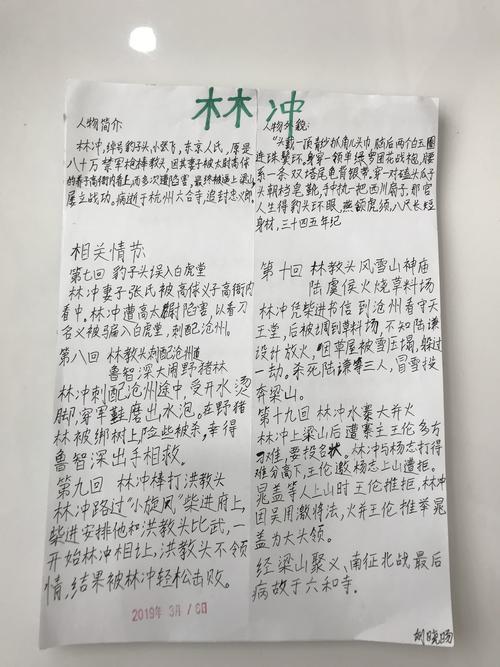 林冲
人物简介
林冲,绰号豹子头,小张飞,东京人氏,原是
八十万禁军枪棒教头,因其妻子被太尉高俅
的养子高衙内看上,而多次遭陷害,最终被逼上梁山,
屡立战功。病逝于杭州六合寺,追封忠义郎
相关情节
第七回 豹子头误入白虎堂
林冲妻子张氏被高俅义子高衙内
看中。林冲遭高太尉陷害,以看刀
名义被马扁入白虎堂,刺配沧州。
第八回 林教头刺配沧州道
鲁智深大闹野猪林
林冲刺配沧州途中,受开水烫
脚,穿草鞋磨出水泡。在野猪
林被绑树上险些被杀,幸得
鲁智深出手相救。
第九回 林冲棒打洪教头
林冲路过“小旋风”柴进府上,
柴进安排他和洪教头比武,一
开始林冲相让,洪教头不领
情,结果被林冲轻松击败。
2019年 3月 16日
人物外貌:
“头戴一顶青纱抓角儿头巾,脑后两个白玉圈
连珠鬓环。身穿一领单绿罗团花战袍,腰
系一条双塔尾龟背银带。穿一对磕头瓜子
头朝档皂靴,手中执一把西川扇子,那官
人生得豹头环眼,燕颔虎须,八尺长短
身材,三十四五年纪
第十回 林教头风雪山神庙
陆虞候火烧草料场
林冲凭柴进书信到沧州看守天
王堂,后被调到草料场,不知陆谦
设计放火,因草屋被雪压塌,躲过
一劫。杀死陆谦等三人,冒雪投
奔梁山。
第十九回 林冲水寨大并火
林冲上梁山后遭寨主王伦多方
刁难,要投名状。林冲与杨志打得
难分高下,王伦邀杨志上山遭拒。
晁盖等人上山时王伦推拒,林冲
因吴用激将法,火并王伦推举晁
盖为大头领。
经梁山聚义、南征北战最后
病故于六和寺。